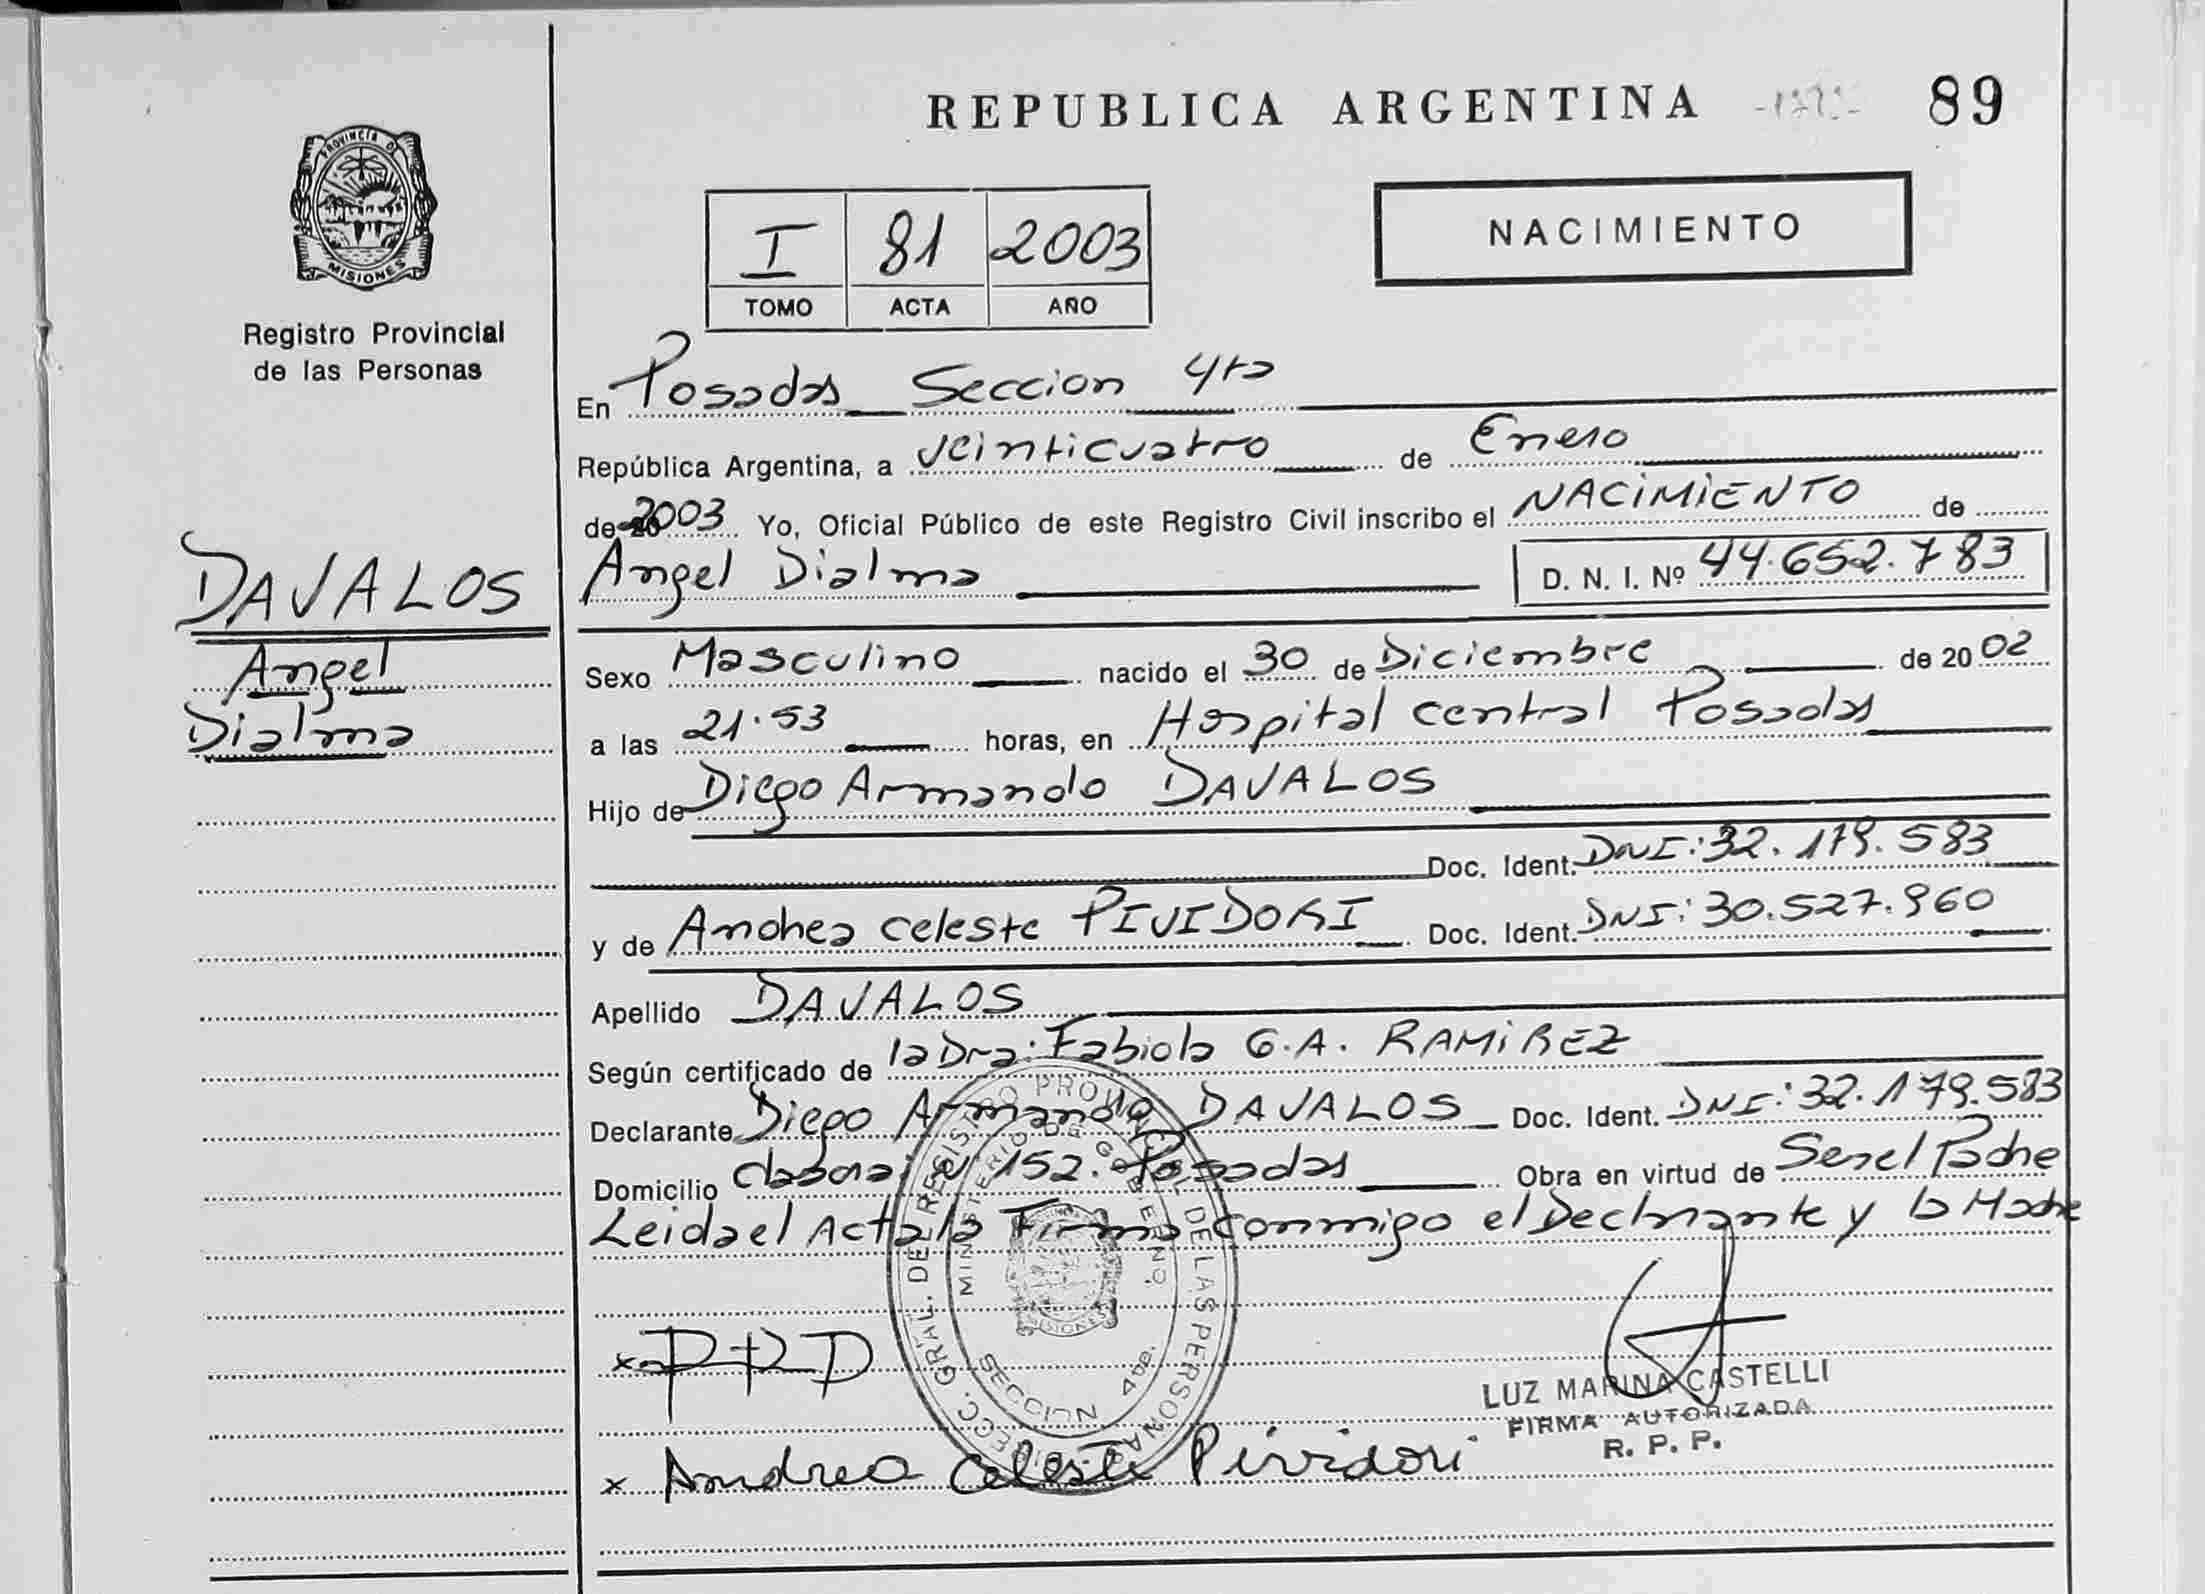 REPUBLICA ARGENTINA 89
PROVINCIA DE MISIONES
Registro Provincial
de las Personas
NACIMIENTO
I 81 2003
TOMO ACTA AÑO
En Posadas Seccion 4ta
República Argentina, a veinticuatro de Enero
de 2003 Yo, Oficial Público de este Registro Civil inscribo el NACIMIENTO de
Angel Dialma D. N. I. Nº 44.652.783
DAVALOS
Angel
Dialma
Sexo Masculino nacido el 30 de Diciembre de 2002
a las 21.53 horas, en Hospital central Posadas
Hijo de Diego Armando DAVALOS
Doc. Ident. DNI: 32.179.583
y de Andrea celeste PIVIDORI Doc. Ident. DNI: 30.527.960
Apellido DAVALOS
Según certificado de la Dra: Fabiola G.A. RAMIREZ
Declarante Diego Armando DAVALOS Doc. Ident. DNI: 32.179.583
Domicilio 152. Posadas Obra en virtud de Ser el Padre
Leida el Acta la Firma conmigo el Declarante y la Madre
DIRECC. GRAL. DEL REGISTRO PROVINCIAL DE LAS PERSONAS
MINISTERIO DE GOBIERNO
SECCION 4ta.
LUZ MARINA CASTELLI
FIRMA AUTORIZADA
R. P. P.
x Andrea Celeste Pividori